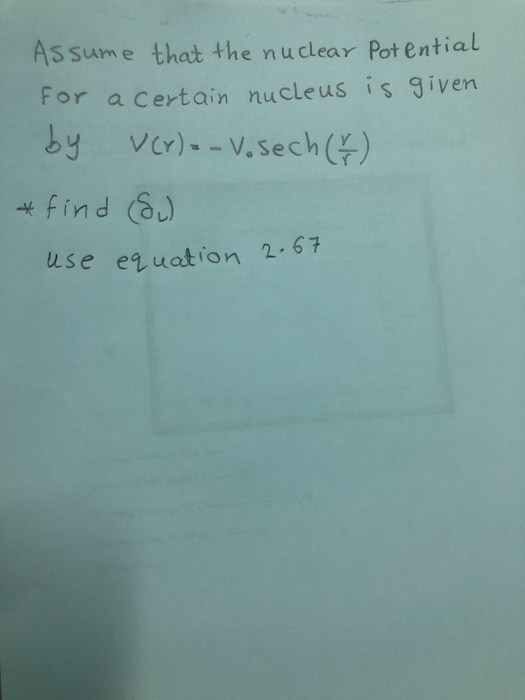 Assume that the nuclear Potential
For a certain nucleus is given
by V(r) = - V. sech (r/r)
* find (δL)
use equation 2.67